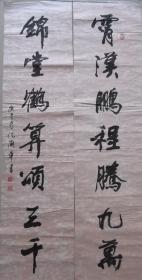 霄漢鵬程騰九萬
錦堂鶴算頌三千